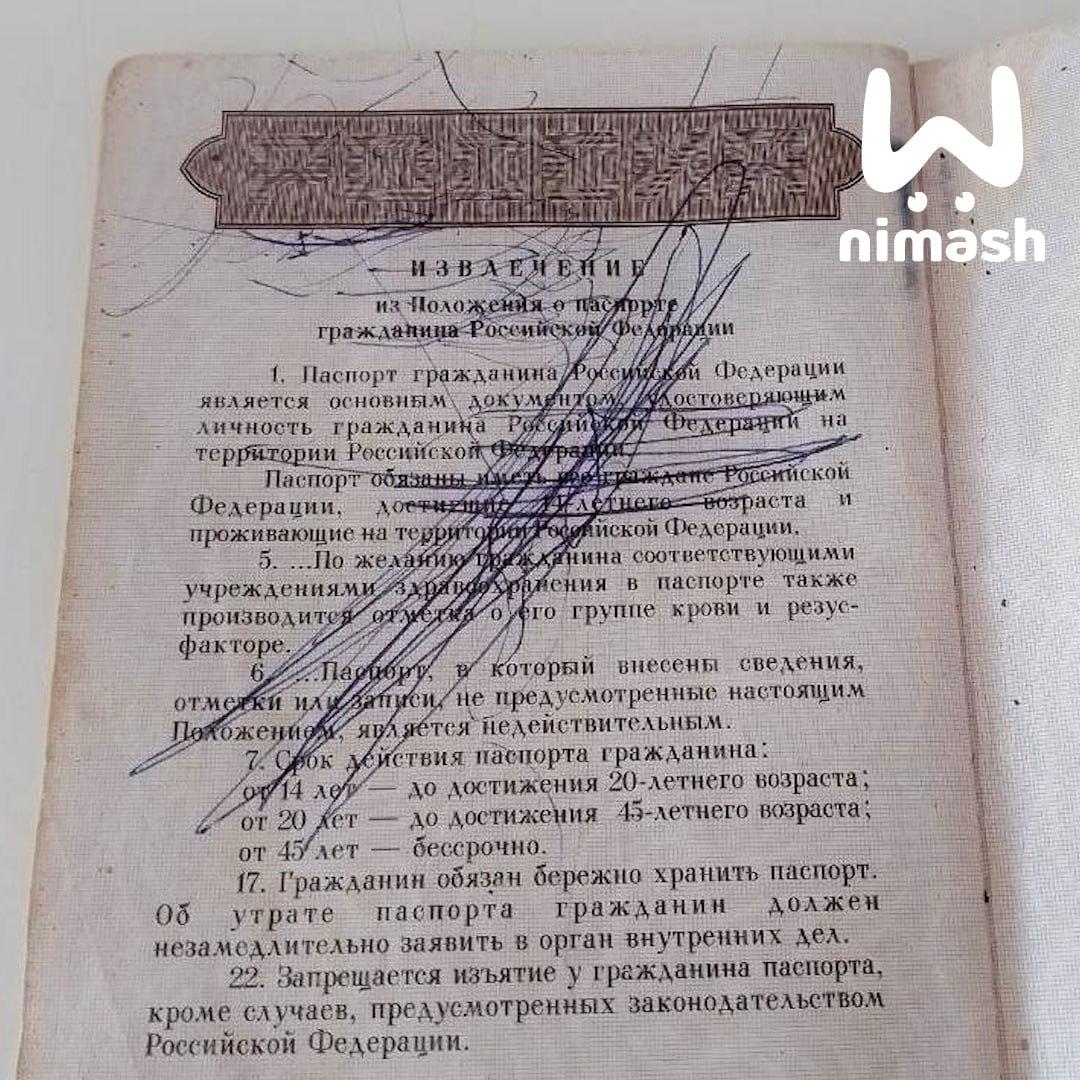 nimash
ИЗВЛЕЧЕНИЕ
из Положения о паспорте
гражданина Российской Федерации
1. Паспорт гражданина Российской Федерации
является основным документом, удостоверяющим
личность гражданина Российской Федерации на
территории Российской Федерации.
Паспорт обязаны иметь все граждане Российской
Федерации, достигшие 14-летнего возраста и
проживающие на территории Российской Федерации.
5. ...По желанию гражданина соответствующими
учреждениями здравоохранения в паспорте также
производится отметка о его группе крови и резус-
факторе.
6. ...Паспорт, в который внесены сведения,
отметки или записи, не предусмотренные настоящим
Положением, является недействительным.
7. Срок действия паспорта гражданина:
от 14 лет — до достижения 20-летнего возраста;
от 20 лет — до достижения 45-летнего возраста;
от 45 лет — бессрочно.
17. Гражданин обязан бережно хранить паспорт.
Об утрате паспорта гражданин должен
незамедлительно заявить в орган внутренних дел.
22. Запрещается изъятие у гражданина паспорта,
кроме случаев, предусмотренных законодательством
Российской Федерации.